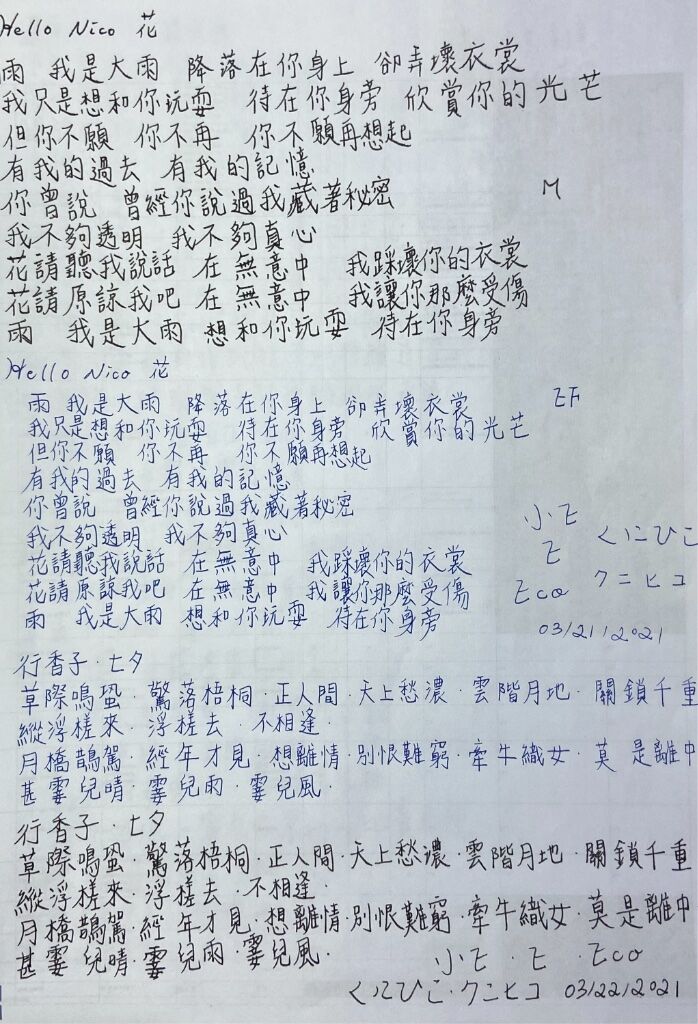 Hello Nico 花
雨 我是大雨 降落在你身上 卻弄壞衣裳
我只是想和你玩耍 待在你身旁 欣賞你的光芒
但你不願 你不再 你不願再想起
有我的過去 有我的記憶
你曾說 曾經你說過我藏著秘密
M
我不夠透明 我不夠真心
花請聽我說話 在無意中 我踩壞你的衣裳
花請原諒我吧 在無意中 我讓你那麼受傷
雨 我是大雨 想和你玩耍 待在你身旁
Hello Nico 花
雨 我是大雨 降落在你身上 卻弄壞衣裳
EF
我只是想和你玩耍 待在你身旁 欣賞你的光芒
但你不願 你不再 你不願再想起
有我的過去 有我的記憶
你曾說 曾經你說過我藏著秘密
我不夠透明 我不夠真心
花請聽我說話 在無意中 我踩壞你的衣裳
花請原諒我吧 在無意中 我讓你那麼受傷
雨 我是大雨 想和你玩耍 待在你身旁
小E
E くにひこ
Eco クニヒコ
03/21/2021
行香子·七夕
草際鳴蛩·驚落梧桐·正人間·天上愁濃·雲階月地·關鎖千重
縱浮槎來·浮槎去·不相逢
月橋鵲駕·經年才見·想離情·別恨難窮·牽牛織女·莫是離中
甚霎兒晴·霎兒雨·霎兒風·
行香子·七夕
草際鳴蛩·驚落梧桐·正人間·天上愁濃·雲階月地·關鎖千重
縱浮槎來·浮槎去·不相逢
月橋鵲駕·經年才見·想離情·別恨難窮·牽牛織女·莫是離中
甚霎兒晴·霎兒雨·霎兒風·
小E·E·Eco
くにひこ·クニヒコ 03/22/2021